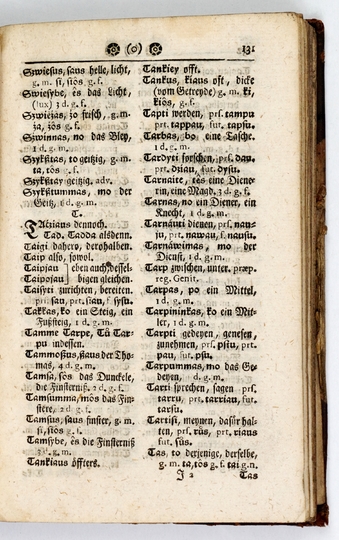 (o) 131
Szwiesus, saus helle, licht,
g. m. si, siôs g. f.
Szwiesybe, ês das Licht,
(lux) 3 d. g. f.
Szwiežas, žo frisch, g. m.
ža, žôs g. f.
Szwinnas, no das Bley,
1 d. g. m.
Szyksztas, to geitzig, g. m.
ta, tôs g. f.
Szyksztay geitzig, adv.
Szyksztummas, mo der
Geitz, 1 d. g. m.
T.
Tácziaus dennoch.
Tad, Tadda alsdenn.
Taigi dahero, derohalben.
Taip also, jowol.
Taipjau eben auch dessel-
Taipojau bigen gleichen.
Taisyti zurichten, bereiten.
prs. sau, prt. siau, f. sysu.
Takkas, ko ein Steig, ein
Fußsteig, 1 d. g. m.
Tamme Tarpe, Tû Tar-
pu indessen.
Tammoszus, szaus der Tho-
mas, 4 d. g. m.
Tamsa, sôs das Dunckele,
die Finsterniß. 2 d. g. f.
Tamsumma, môs das Fin-
stere, 2 d. g. f.
Tamsus, saus finster, g. m.
si, siôs g. f.
Tamsybe, ês die Finsterniß
3 d. g. m.
Tankiaus öffters.
Tankiey offt.
Tankus, kiaus oft, dicke
(vom Getreyde) g. m. ki,
kiôs, g. f.
Tapti werden, prs. tampu
prt. tappau, fut. tapsu.
Tarbas, bo eine Tasche.
1 d. g. m.
Tardyti forschen, prs. dau.
prt. dziau, fut. dysu.
Tarnaite, tês eine Diene-
rin, eine Magd. 3 d. g. f.
Tarnas, no ein Diener, ein
Knecht, 1 d. g. m.
Tarnáuti dienen, prs. nau-
ju, prt. nawau, f. nausu.
Tarnáwimas, mo der
Dienst, 1 d. g. m.
Tarp zwischen, unter. præp.
reg. Genit.
Tarpas, po ein Mittel,
1 d. g. m.
Tarpininkas, ko ein Mit-
ler, 1 d. g. m.
Tarpti gedeyen, genesen,
zunehmen, prs. pstu, prt.
pau, fut. psu.
Tarpummas, mo das Ge-
deyen, d. g. m.
Tarti sprechen, sagen prs.
tarru, prt. tarriau, fut.
tarsu.
Tartisi, meynen, dafür hal-
ten, prs. rûs, prt. riaus
fut. sûs.
Tas, to derjenige, derselbe,
g. m. ta, tôs g. f. tai g. n.
J 2 Tas